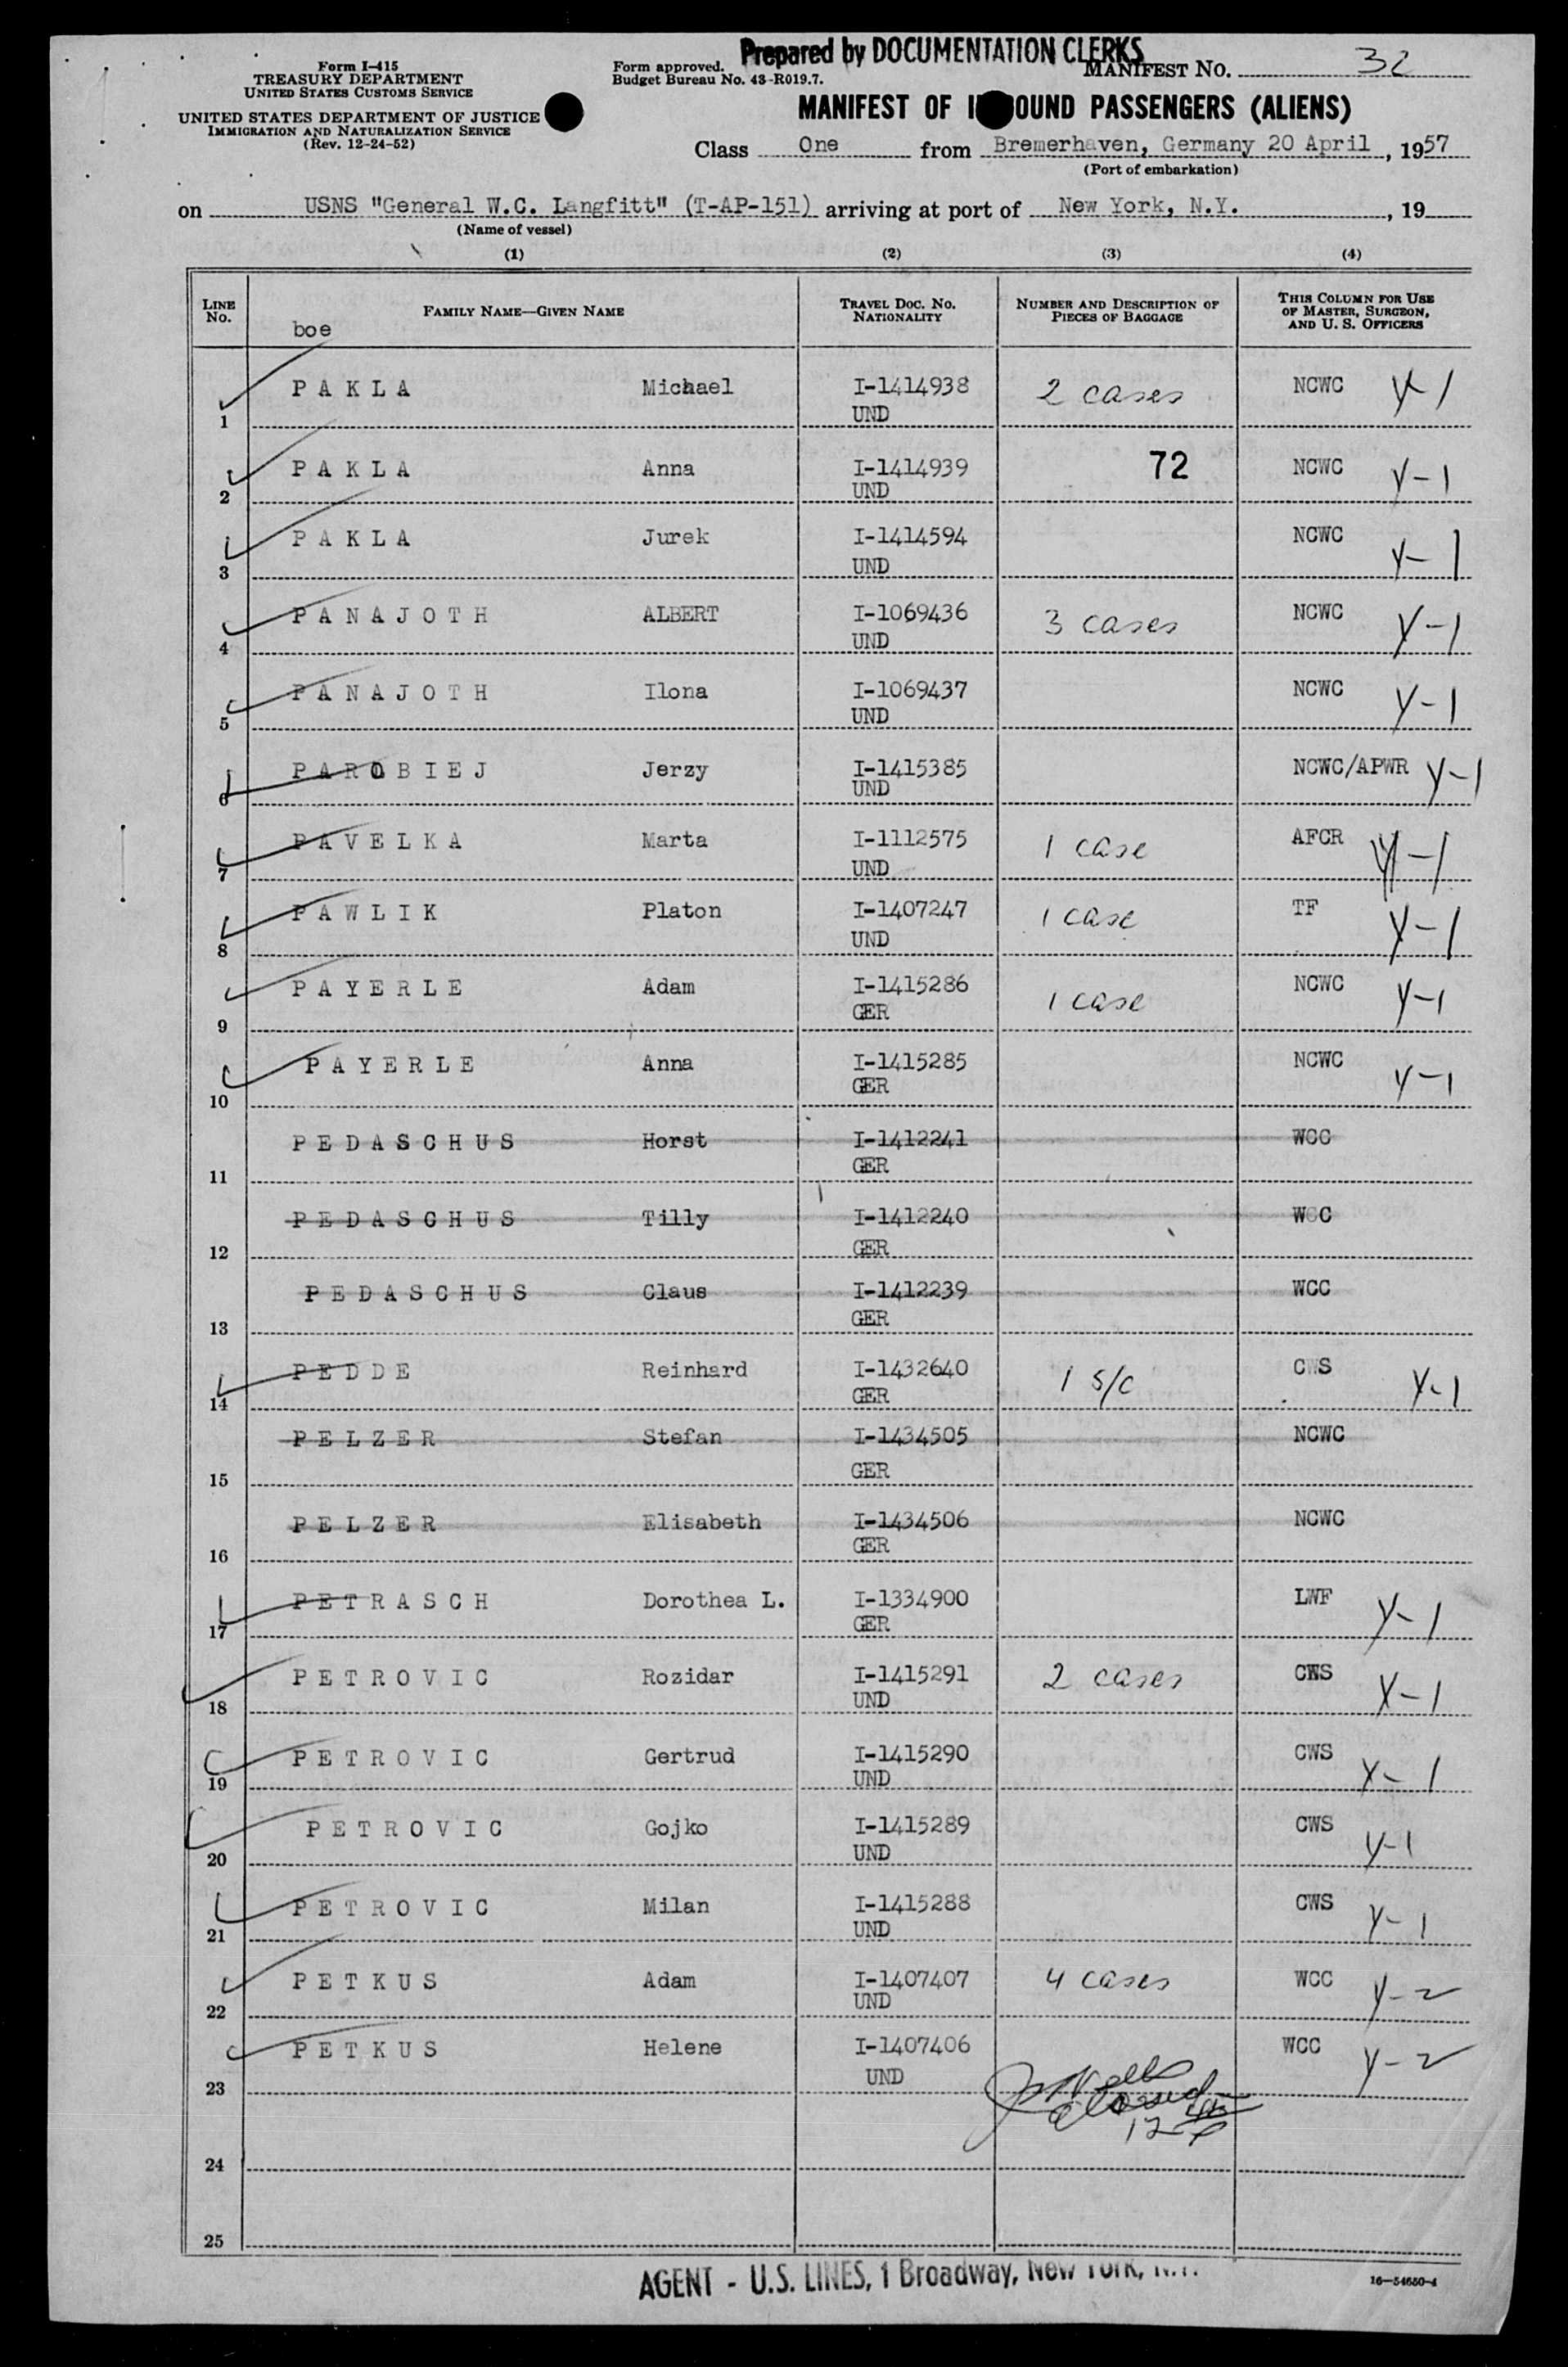 Prepared by DOCUMENTATION CLERKS
Form I-415
TREASURY DEPARTMENT
UNITED STATES CUSTOMS SERVICE
UNITED STATES DEPARTMENT OF JUSTICE
IMMIGRATION AND NATURALIZATION SERVICE
(Rev. 12-24-52)
Form approved.
Budget Bureau No. 43-R019.7.
MANIFEST NO. 32
MANIFEST OF I OUND PASSENGERS (ALIENS)
Class One from Bremerhaven, Germany 20 April, 1957
(Port of embarkation)
on USNS "General W.C. Langfitt" (T-AP-151) arriving at port of New York, N.Y., 19
(Name of vessel)
(1) (2) (3) (4)
LINE No. FAMILY NAME—GIVEN NAME TRAVEL DOC. NO. NATIONALITY NUMBER AND DESCRIPTION OF PIECES OF BAGGAGE THIS COLUMN FOR USE OF MASTER, SURGEON, AND U. S. OFFICERS
boe
1 PAKLA Michael I-1414938 UND 2 cases NCWC Y-1
2 PAKLA Anna I-1414939 UND 72 NCWC Y-1
3 PAKLA Jurek I-1414594 UND NCWC Y-1
4 PANAJOTH ALBERT I-1069436 UND 3 cases NCWC Y-1
5 PANAJOTH Ilona I-1069437 UND NCWC Y-1
6 PAROBIEJ Jerzy I-1415385 UND NCWC/APWR Y-1
7 PAVELKA Marta I-1112575 UND 1 case AFCR Y-1
8 PAWLIK Platon I-1407247 UND 1 case TF Y-1
9 PAYERLE Adam I-1415286 GER 1 case NCWC Y-1
10 PAYERLE Anna I-1415285 GER NCWC Y-1
11 PEDASCHUS Horst I-1412241 GER WCC
12 PEDASCHUS Tilly I-1412240 GER WCC
13 PEDASCHUS Claus I-1412239 GER WCC
14 PEDDE Reinhard I-1432640 GER 1 s/c CWS Y-1
15 PELZER Stefan I-1434505 GER NCWC
16 PELZER Elisabeth I-1434506 GER NCWC
17 PETRASCH Dorothea L. I-1334900 GER LWF Y-1
18 PETROVIC Rozidar I-1415291 UND 2 cases CWS Y-1
19 PETROVIC Gertrud I-1415290 UND CWS Y-1
20 PETROVIC Gojko I-1415289 UND CWS Y-1
21 PETROVIC Milan I-1415288 UND CWS Y-1
22 PETKUS Adam I-1407407 UND 4 cases WCC Y-2
23 PETKUS Helene I-1407406 UND WCC Y-2
24
25
AGENT - U.S. LINES, 1 Broadway, New York, N.Y.
16-54650-4